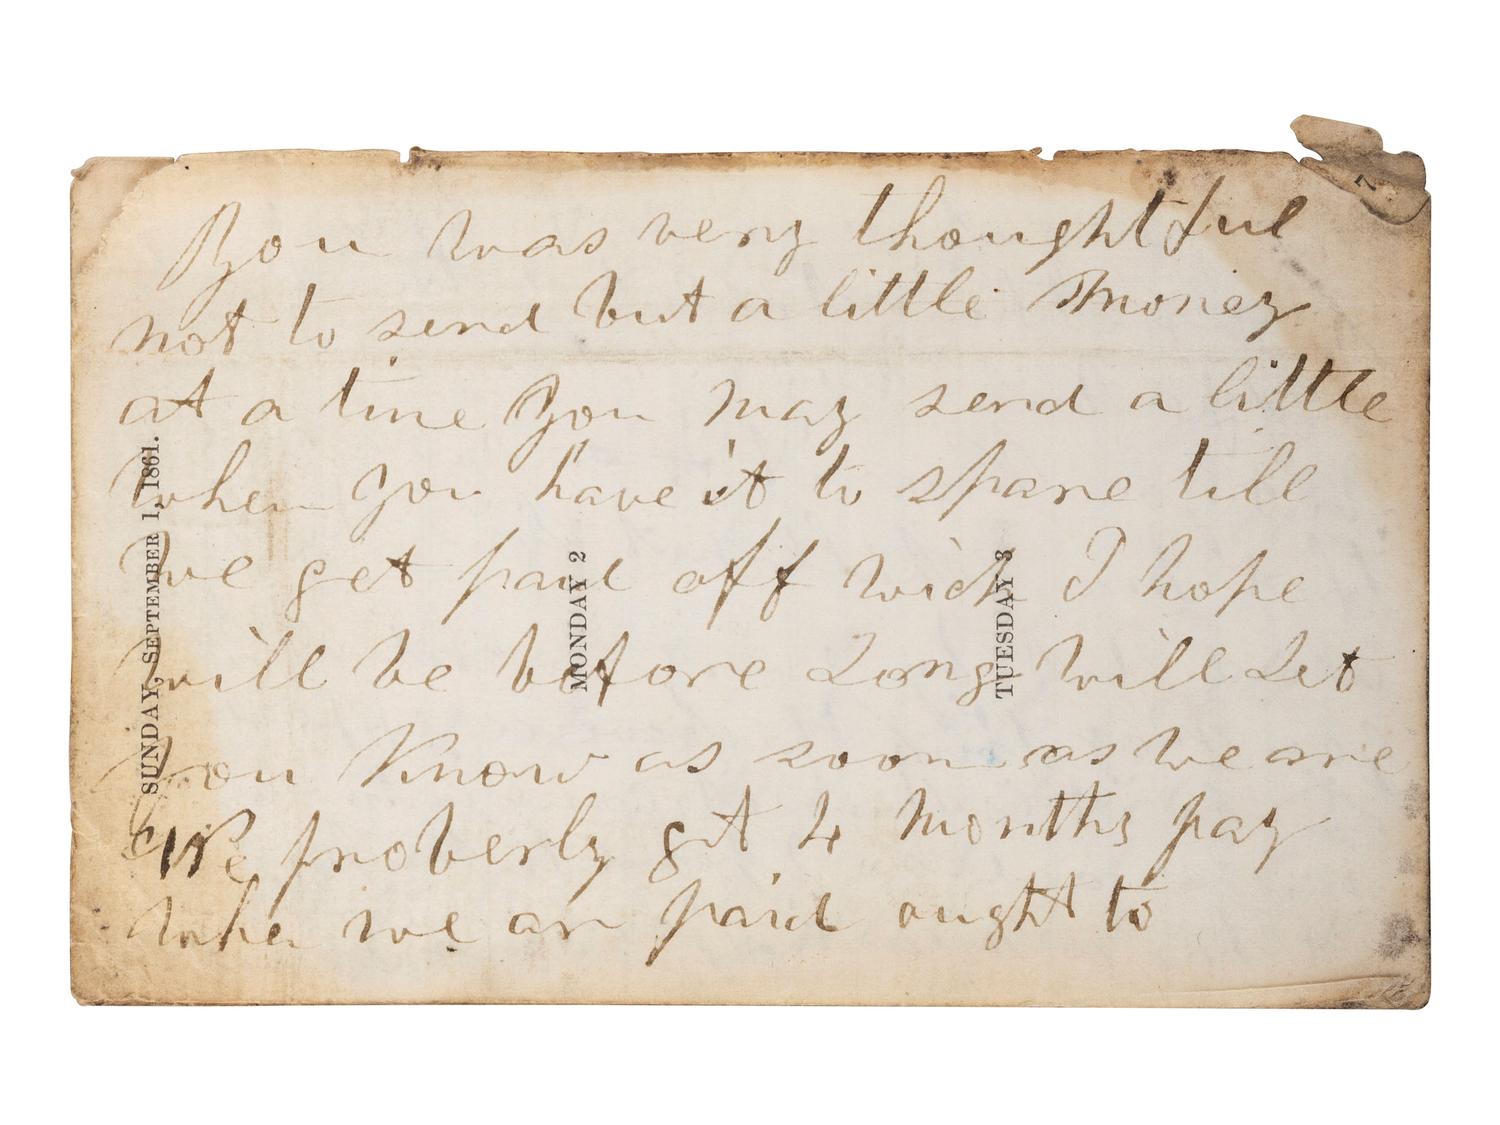 You was very thoughtful
not to send but a little Money
at a time You may send a little
when you have it to spare till
we get paid off wich I hope
will be before Long will Let
you Know as soon as we are
We proberly get 4 months pay
when we are paid ought to
SUNDAY, SEPTEMBER 1, 1861.
MONDAY 2
TUESDAY 3
7